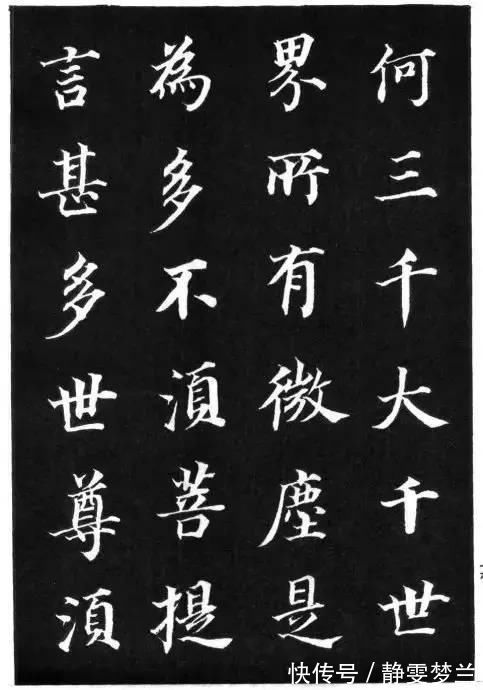 何三千大千世
界所有微塵是
為多不湏菩提
言甚多世尊湏
快传号/静雯梦兰